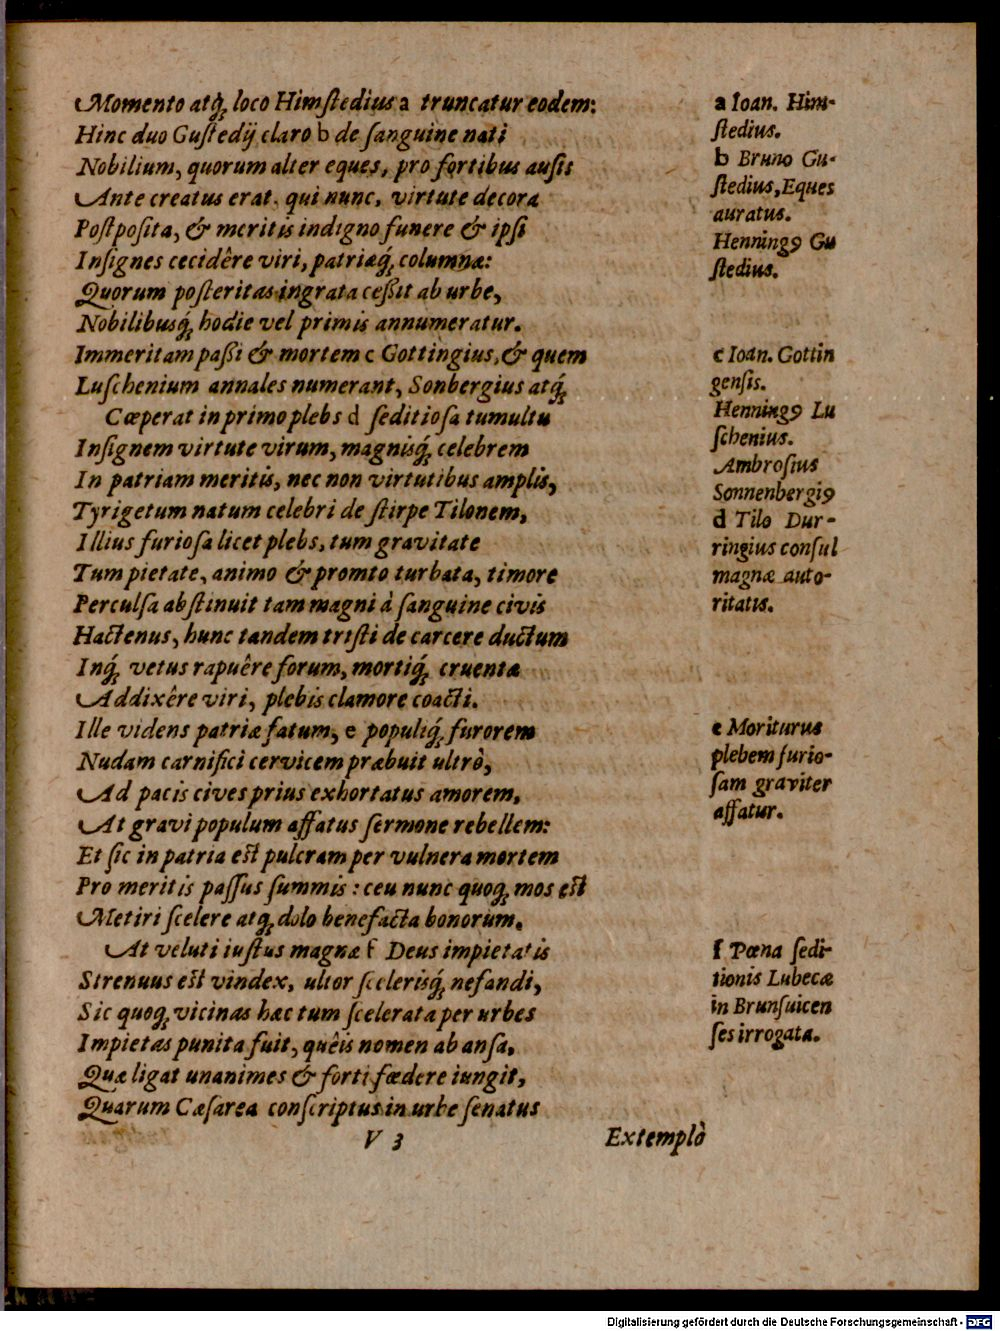 Momento atq́; loco Himſtedius a truncatur eodem:
Hinc duo Guſtedij claro b de ſanguine nati
Nobilium, quorum alter eques, pro fortibus auſis
Ante creatus erat. qui nunc, virtute decora
Poſtpoſita, & meritis indigno funere & ipſi
Inſignes cecidêre viri, patriæq́; columnæ:
Quorum poſteritas ingrata ceßit ab urbe,
Nobilibusq́; hodie vel primis annumeratur.
Immeritam paßi & mortem c Gottingius, & quem
Luſchenium annales numerant, Sonbergius atq́;
Cœperat in primo plebs d ſeditioſa tumultu
Inſignem virtute virum, magnisq́; celebrem
In patriam meritis, nec non virtutibus amplis,
Tyrigetum natum celebri de ſtirpe Tilonem,
Illius furioſa licet plebs, tum gravitate
Tum pietate, animo & promto turbata, timore
Perculſa abſtinuit tam magni à ſanguine civis
Hactenus, hunc tandem triſti de carcere ductum
Inq́; vetus rapuêre forum, mortiq́; cruentæ
Addixêre viri, plebis clamore coacti.
Ille videns patriæ fatum, e populiq́; furorem
Nudam carnifici cervicem præbuit ultrò,
Ad pacis cives prius exhortatus amorem,
At gravi populum affatus ſermone rebellem:
Et ſic in patria est pulcram per vulnera mortem
Pro meritis paſſus ſummis: ceu nunc quoq; mos est
Metiri ſcelere atq; dolo benefacta bonorum.
At veluti iuſtus magnæ f Deus impietatis
Strenuus est vindex, ultor ſcelerisq́; nefandi,
Sic quoq; vicinas hac tum ſcelerata per urbes
Impietas punita fuit, quêis nomen ab anſa,
Quæ ligat unanimes & forti fœdere iungit,
Quarum Cæſarea conſcriptus in urbe ſenatus
V 3 Extemplò
a Ioan. Him-
ſtedius.
b Bruno Gu-
ſtedius, Eques
auratus.
Henning9 Gu
ſtedius.
c Ioan. Gottin
genſis.
Henning9 Lu
ſchenius.
Ambroſius
Sonnenbergi9
d Tilo Dur-
ringius conſul
magnæ auto-
ritatis.
e Moriturus
plebem furio-
ſam graviter
affatur.
f Pœna ſedi-
tionis Lubecæ
in Brunſuicen
ſes irrogata.
Digitalisierung gefördert durch die Deutsche Forschungsgemeinschaft - DFG